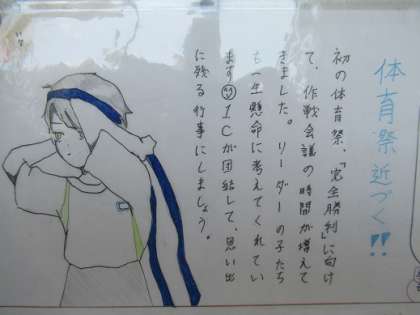 体育祭近づく!!
初の体育祭、「完全勝利」に向け
て、作戦会議の時間が増えて
きました。リーダーの子たち
も一生懸命に考えてくれてい
ます😊1Cが団結して、思い出
に残る行事にしましょう。